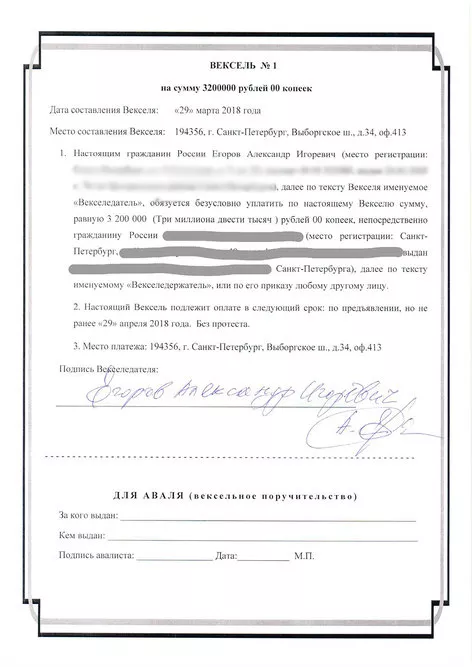 ВЕКСЕЛЬ № 1
на сумму 3200000 рублей 00 копеек
Дата составления Векселя: «29» марта 2018 года
Место составления Векселя: 194356, г. Санкт-Петербург, Выборгское ш., д.34, оф.413
1. Настоящим гражданин России Егоров Александр Игоревич (место регистрации:
), далее по тексту Векселя именуемое
«Векселедатель», обязуется безусловно уплатить по настоящему Векселю сумму,
равную 3 200 000 (Три миллиона двести тысяч ) рублей 00 копеек, непосредственно
гражданину России (место регистрации: Санкт-
Петербург, выдан
Санкт-Петербурга), далее по тексту
именуемому «Векселедержатель», или по его приказу любому другому лицу.
2. Настоящий Вексель подлежит оплате в следующий срок: по предъявлении, но не
ранее «29» апреля 2018 года. Без протеста.
3. Место платежа: 194356, г. Санкт-Петербург, Выборгское ш., д.34, оф.413
Подпись Векселедателя:
Егоров Александр Игоревич
ДЛЯ АВАЛЯ (вексельное поручительство)
За кого выдан:
Кем выдан:
Подпись авалиста: Дата: М.П.